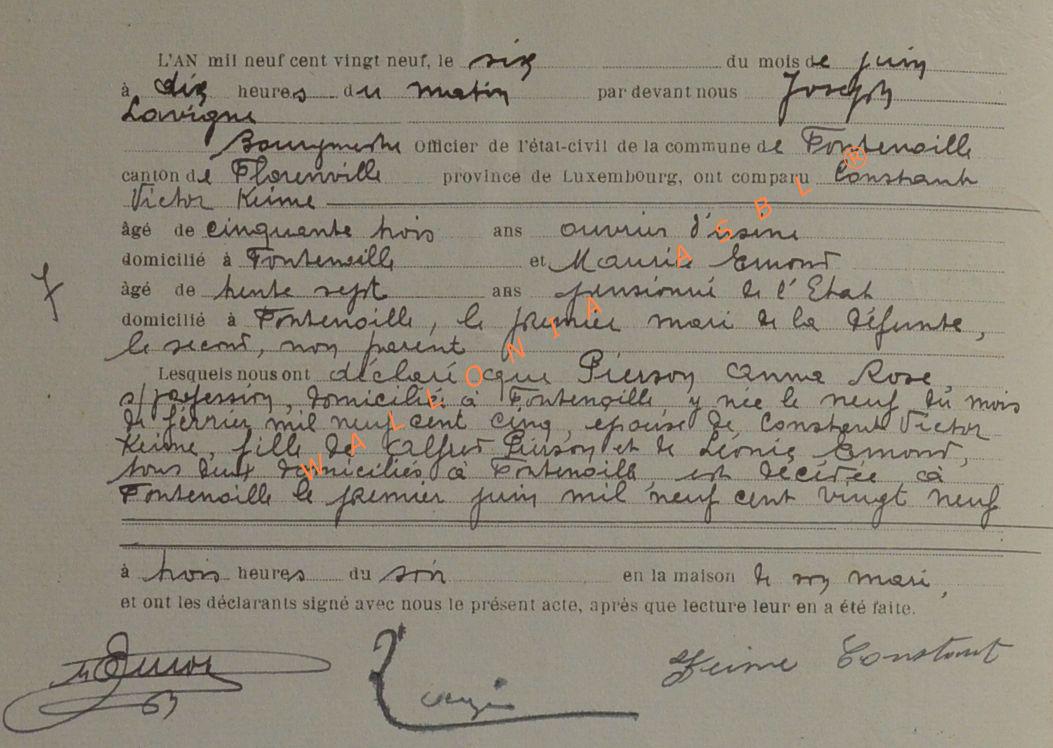 L'AN mil neuf cent vingt neuf, le six du mois de juin
à dix heures du matin par devant nous Joseph
Lavigne
Bourgmestre Officier de l'état-civil de la commune de Fontenoille
canton de Florenville province de Luxembourg, ont comparu Constant
Victor Keime
âgé de cinquante trois ans ouvrier d'usine
domicilié à Fontenoille et Maurice Emond
âgé de trente sept ans pensionné de l'Etat
7
domicilié à Fontenoille, le premier mari de la défunte,
le second, non parent
Lesquels nous ont déclaré que Pierson Anna Rose,
s/profession, domiciliée à Fontenoille, y née le neuf du mois
de février mil neuf cent cinq, épouse de Constant Victor
Keime, fille de Alfred Pierson et de Léonie Emond,
tous deux domiciliés à Fontenoille, est décédée à
Fontenoille le premier juin mil neuf cent vingt neuf
à trois heures du soir en la maison de son mari,
et ont les déclarants signé avec nous le présent acte, après que lecture leur en a été faite.
Keime Constant
WALLONIA ASBL ®